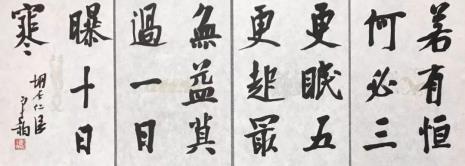 若有恒
何必三
更眠五
更起最
無益莫
過一日
曝十日
寒
胡居仁